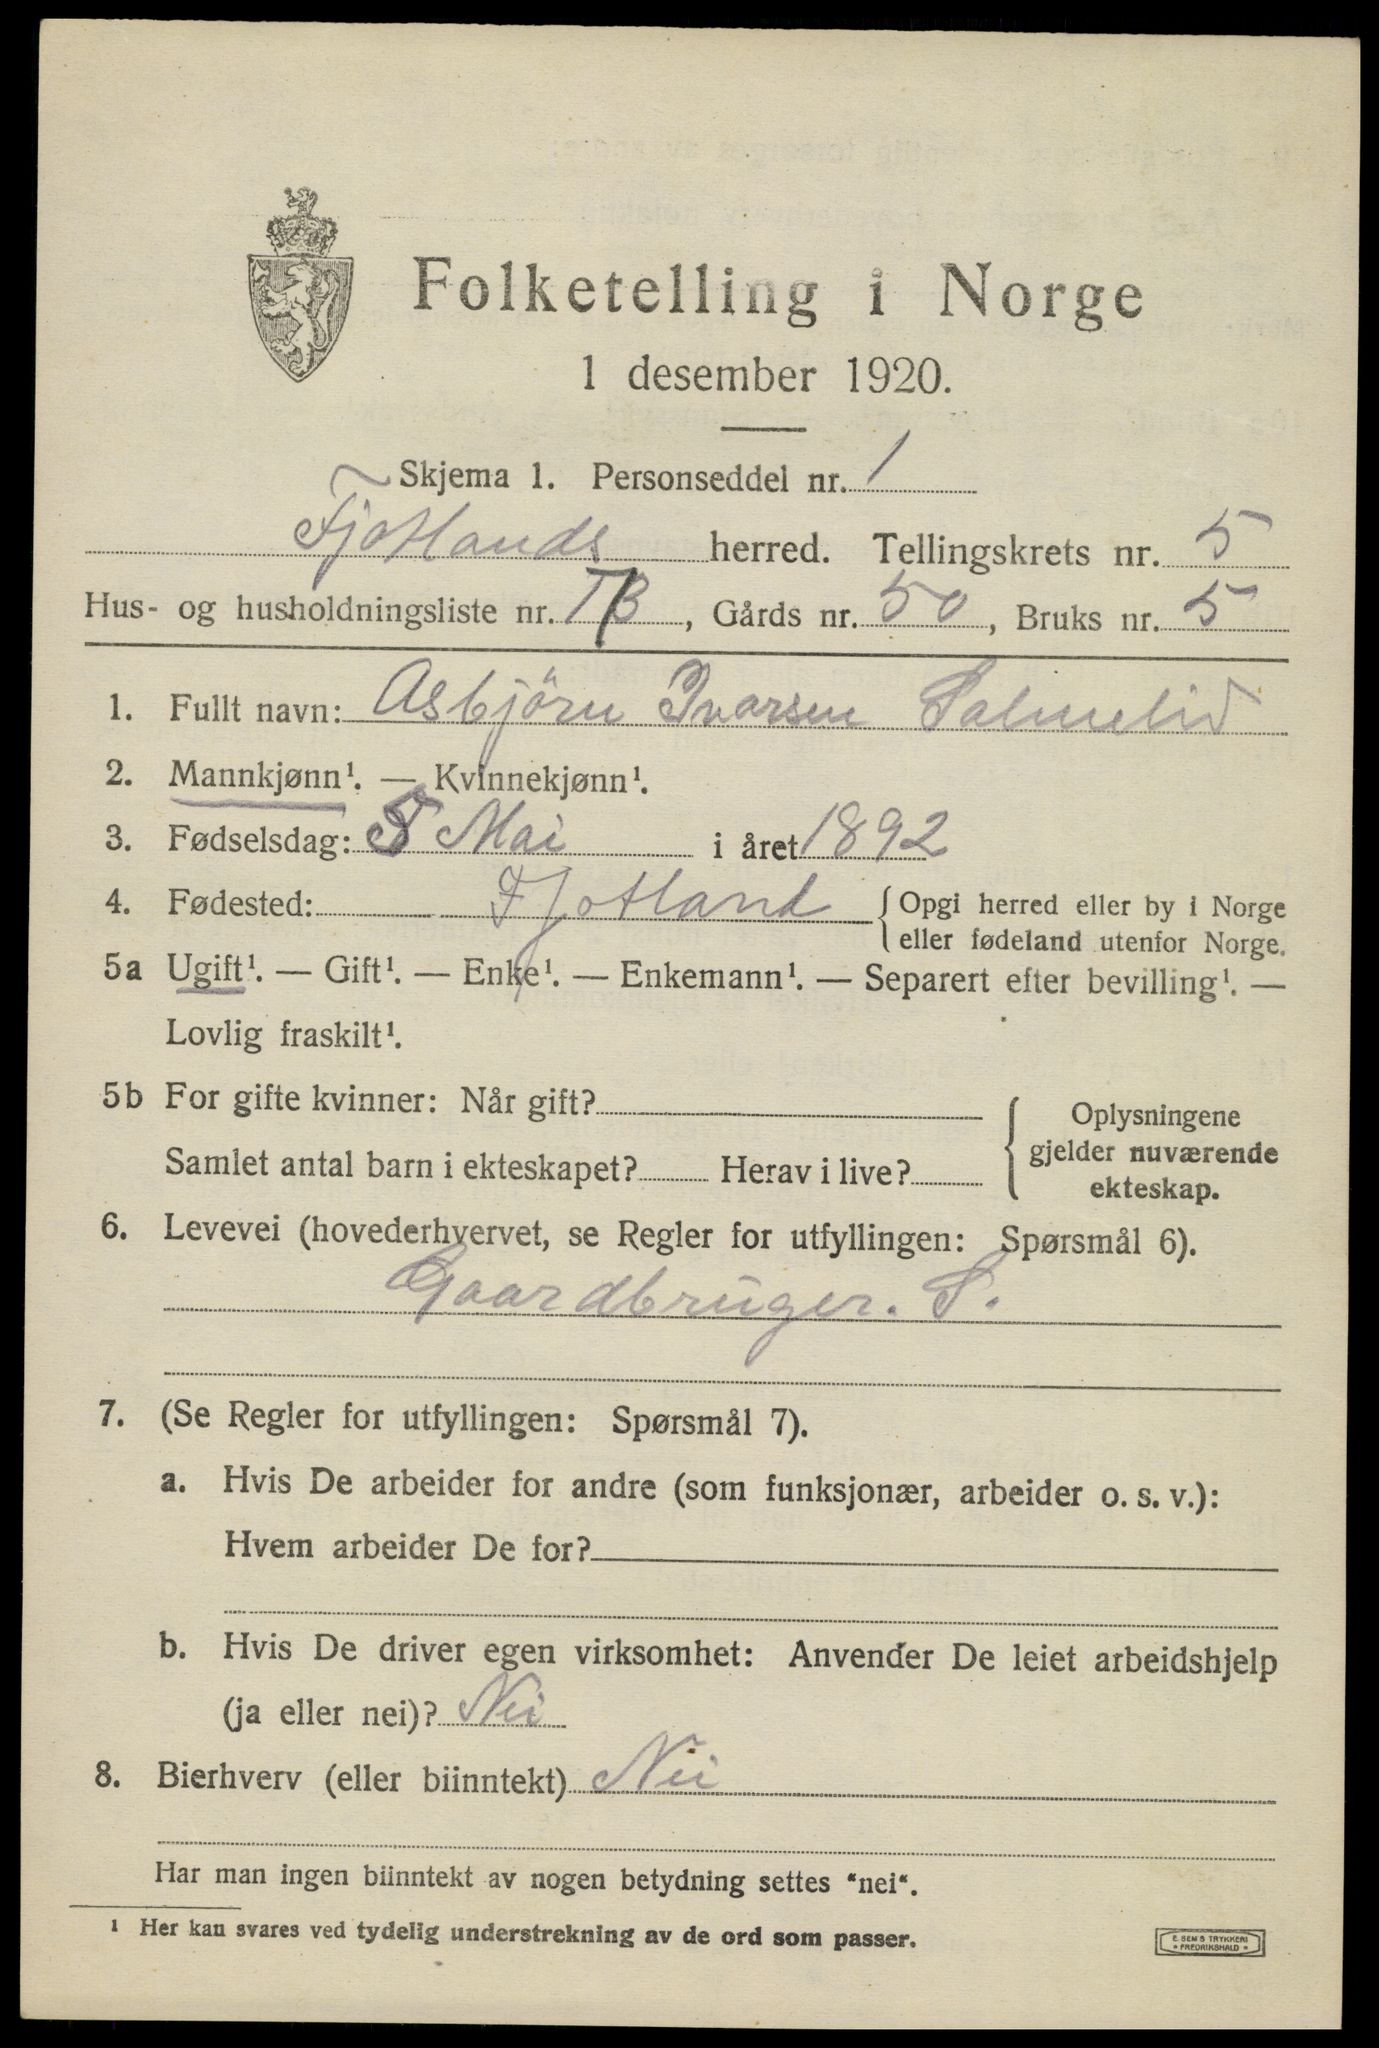 Folketelling i Norge
1 desember 1920.
Skjema 1. Personseddel nr. 1
Fjotlands herred. Tellingskrets nr. 5
Hus- og husholdningsliste nr. , Gårds nr. 50, Bruks nr. 5
1. Fullt navn: Asbjörn Ivarsen Salmelid
2. Mannkjønn¹. — Kvinnekjønn¹.
3. Fødselsdag: 5 Mai i året 1892
4. Fødested: Fjotland { Opgi herred eller by i Norge
eller fødeland utenfor Norge.
5a Ugift¹. — Gift¹. — Enke¹. — Enkemann¹. — Separert efter bevilling¹. —
Lovlig fraskilt¹.
5b For gifte kvinner: Når gift? { Oplysningene
gjelder nuværende
Samlet antal barn i ekteskapet? Herav i live?
ekteskap.
6. Levevei (hovederhvervet, se Regler for utfyllingen: Spørsmål 6).
Gaardbruger. S.
7. (Se Regler for utfyllingen: Spørsmål 7).
a. Hvis De arbeider for andre (som funksjonær, arbeider o. s. v.):
Hvem arbeider De for?
b. Hvis De driver egen virksomhet: Anvender De leiet arbeidshjelp
(ja eller nei)? Nei
8. Bierhverv (eller biinntekt) Nei
Har man ingen biinntekt av nogen betydning settes "nei".
¹ Her kan svares ved tydelig understrekning av de ord som passer.
E. SEM'S TRYKKERI
* FREDRIKSHALD *